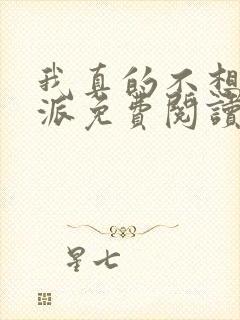 我真的不想
派免費閱讀
星七